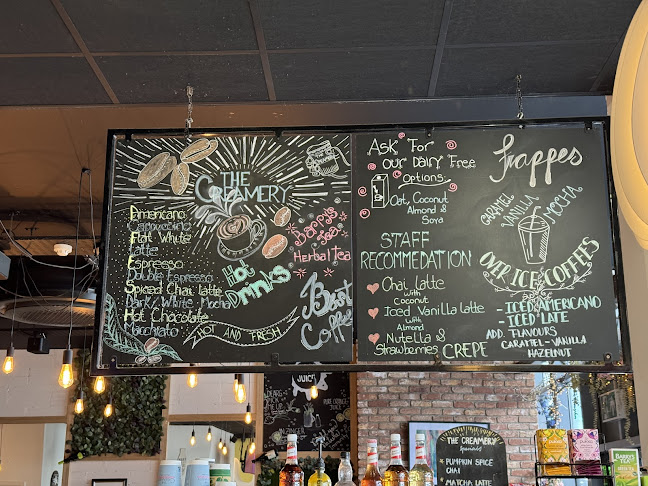 THE
CREAMERY
Americano
Cappuccino
Flat White
Latte
Espresso
Double Espresso
Spiced Chai latte
Dark/White Mocha
Hot Chocolate
Macchiato
Hot
Drinks
HOT AND FRESH
Barry's
Tea
Herbal Tea
Best
Coffee
ASK FOR
OUR DAIRY FREE
Options:
Oat, Coconut
Almond &
Soya
STAFF
RECOMMEDATION
Chai Latte
with
Coconut
Iced Vanilla Latte
with
Almond
Nutella &
Strawberries CREPE
Frappes
CARAMEL
VANILLA
MOCHA
OVER ICE COFFEES
- ICED AMERICANO
- ICED LATE
ADD FLAVOURS
CARAMEL - VANILLA
HAZELNUT
JUICE
THE CREAMERY
Specials
PUMPKIN SPICE
CHAI
MATCHA LATTE
BARRY'S
TEA